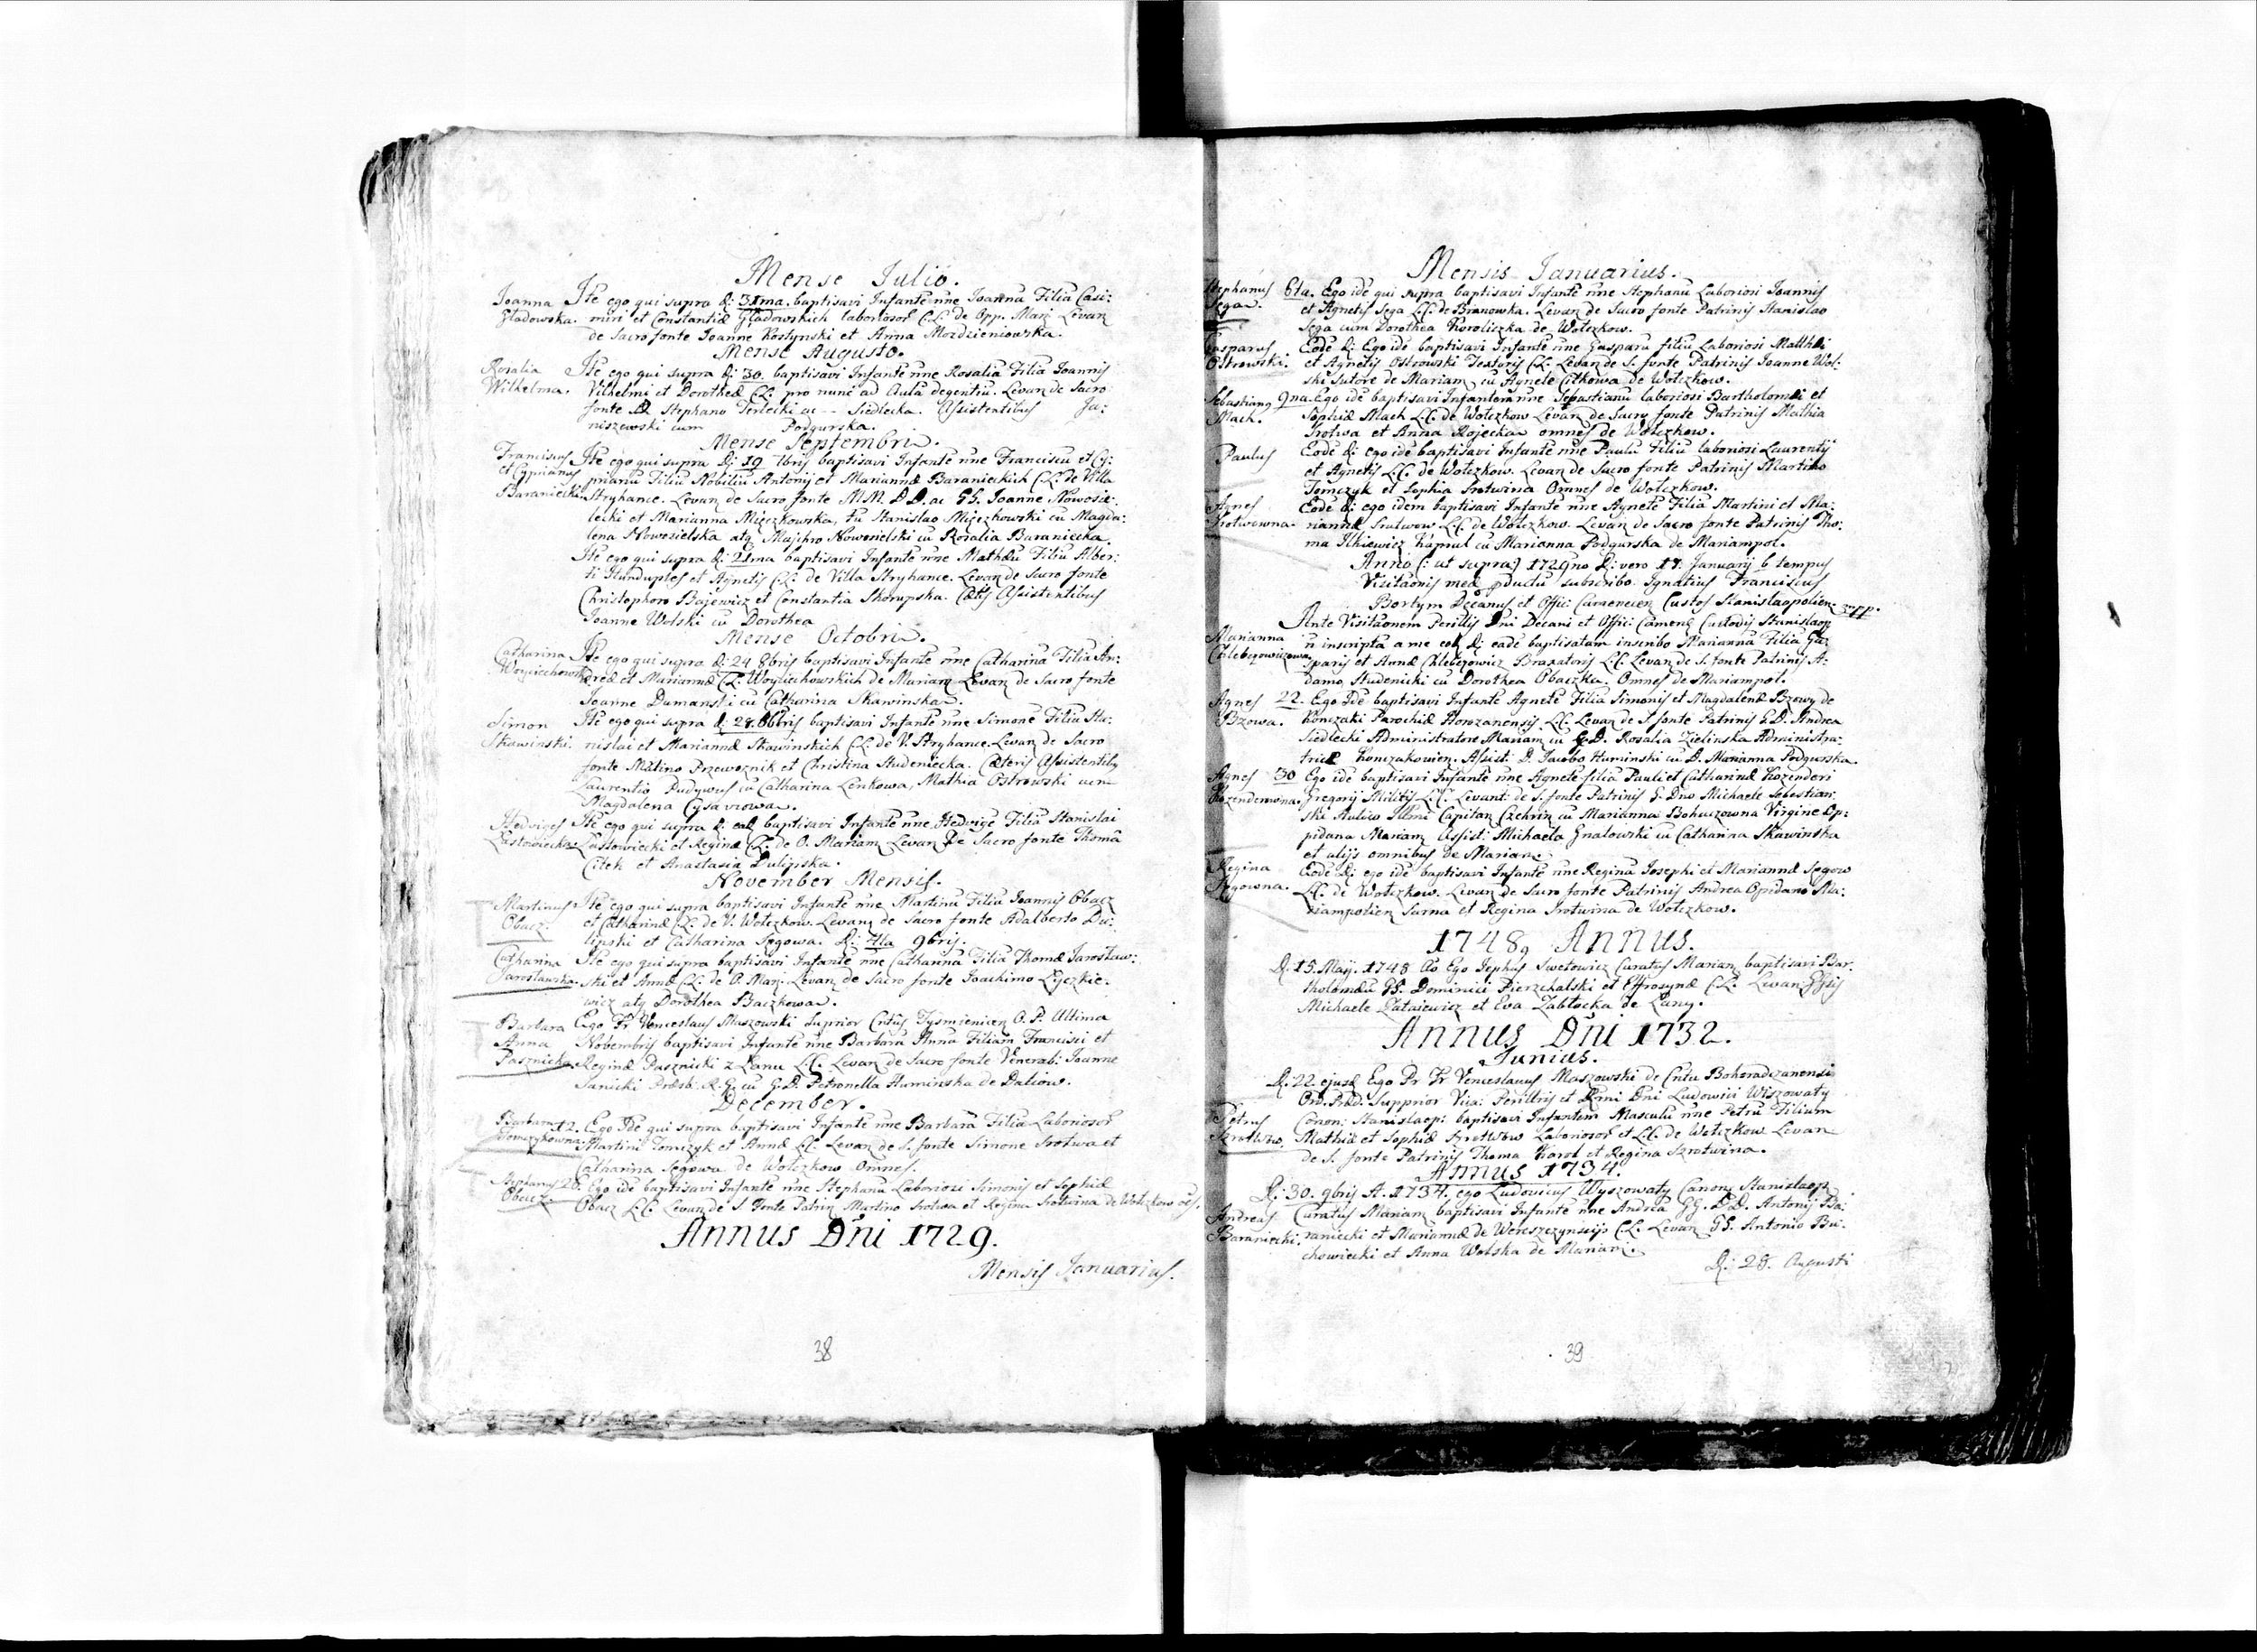 Mense Julio.
Joanna Ite ego qui supra d: 31ma. baptisavi Infante nne Joanna Filia Casi:
Gładowska. miri et Constantiæ Gładowskich laboriosor C:L: de Opp. Marj Levan
de Sacro fonte Joanne Kostynski et Anna Mozdzieniowska.
Mense Augusto.
Rosalia Ite ego qui supra d: 30. baptisavi Infante nne Rosalia Filia Joannis
Wilhelma. Vilhelmi et Dorotheæ C:L: pro nunc ad Aulā degentiū. Levan de Sacro
fonte D Stephano Terlecki ac -- Siedlecka. Assistentibus Ja:
niszewski cum Podgurska.
Mense Septembri.
Franciscus Ite ego qui supra d: 19 7bris baptisavi Infante nne Franciscu et Cy:
et Cyprianus prianu Filiu Nobiliu Antonij et Mariannæ Baranieckich C:L: de Villa
Baraniecki Stryhance. Levan de Sacro fonte M.M. D D. ac GG. Joanne Nowosie:
lecki et Marianna Mięczkowska, tu Stanislao Mięczkowski cu Magda:
lena Nowosielska atq Majchro Nowosielski cu Rosalia Baraniecka.
Ite ego qui supra d: 21ma baptisavi Infante nne Mathæu Filiu Alber:
ti et Agnetis C:L: de Villa Stryhance. Levan de Sacro fonte
Christophoro Bajewicz et Constantia Skorupska. Cætis Assistentibus
Joanne Wolski cu Dorothea
Mense Octobri.
Catharina Ite ego qui supra d: 24 8bris baptisavi Infante nne Catharina Filia An:
Woyciechowska dreæ et Mariannæ C:L: Woyciechowskich de Mariam Levan de Sacro fonte
Joanne Dumanski cu Catharina Skawinska.
Simon Ite ego qui supra d: 28. 8bris baptisavi Infante nne Simone Filiu Sta:
Skawinski. nislai et Mariannæ Skawinskich C:L: de V. Stryhance. Levan de Sacro
fonte Mrtino Przewoznik et Christina Studeniecka. Cæteris Assistentibq
Laurentio Pudywus cu Catharina Lenkowa, Mathia Ostrowski cum
Magdalena Cysarzowa.
Hedviges Ite ego qui supra d: ead baptisavi Infante nne Hedvige Filia Stanislai
Lastowiecka Lastowiecki et Reginæ C:L: de O. Mariam Levan De Sacro fonte Thoma
Citek et Anastasia Dulipska.
November Mensis.
Martinus Ite ego qui supra baptisavi Infante nne Martinu Filiu Joannis Obacz
Obacz. et Catharinæ C:L: de V. Wołczkow. Levanz de Sacro fonte Adalberto Du:
lipski et Catharina Sęgowa. D: 4ta 9bris.
Catharina Ite ego qui supra baptisavi Infante nne Catharina Filia Thomæ Jarosław:
Jarosławska. ski et Annæ C:L: de O. Marj. Levan de Sacro fonte Joachimo
wicz atq Dorothea Baczkowa.
Barbara Ego Fr Venceslaus Maszowski Suprior Cntus Tysmienicen O. P. Ultima
Anna Nobembris baptisavi Infante nne Barbara Anna Filiam Francisci et
Pasznicka Reginæ Pasznicki z Łanu L:C. Levan de Sacro fonte Venerab: Joanne
Sanicki Præsb: R. G. cu G.D. Petronella Huminska de Datiow.
December.
Barbara 12. Ego Ide qui supra baptisavi Infante nne Barbara Filia Laboriosor
Tomczykowna. Martini Tomczyk et Annæ L:C. Levan de S. fonte Simone Srotwa et
Catharina Sęgowa de Wołczkow Omnes.
Stephanus 26. Ego ide baptisavi Infante nne Stephanu Laboriosi Simonis et Sophiæ
Obacz. Obacz L:C. Levan de S Fonte Patrin Martino Srotwa et Regina Srotwina de Wołczkow oēs.
Annus Dni 1729.
Mensis Januarius.
38
Mensis Januarius.
Stephanus 6ta. Ego ide qui supra baptisavi Infante nne Stephanu Laboriosi Joannis
Sęga. et Agnetis Sęga L:C. de Branowka. Levan de Sacro fonte Patrinis Stanislao
Sęga cum Dorothea Koroliczka de Wołczkow.
Gasparus Eode d: Ego ide baptisavi Infante nne Gasparu filiu Laboriosi Matthæi
Ostrowski. et Agnetis Ostrowski Textoris C:L: Levan de S. fonte Patrinis Joanne Wol:
ski Sutore de Mariam cu Agnete Citkowa de Wołczkow.
Sebastianq 9na. Ego ide baptisavi Infantem nne Sebastianu laboriosi Bartholomæi et
Mach. Sophiæ Mach L:C. de Wołczkow Levan de Sacro fonte Patrinis Mathia
Srotwa et Anna Kojecka omnes de Wołczkow.
Paulus Eode d: ego ide baptisavi Infante nne Paulu Filiu laboriosi Laurentij
et Agnetis L:C. de Wołczkow. Levan de Sacro fonte Patrinis Martino
Tomczyk et Sophia Srotwina Omnes de Wołczkow.
Agnes Eode d: ego idem baptisavi Infante nne Agnete Filia Martini et Ma:
Srotwowna. riannæ Srutwow L:C. de Wołczkow. Levan de Sacro fonte Patrinis Tho:
ma Ilkiewicz Kapral cu Marianna Podgurska de Mariampol.
Anno (: ut supra:) 1729no D: vero 17. Januarij tempus
Visitaonis meæ pductu subscribo. Ignatius Franciscus
Bortym Decanus et Offic: Camenecen Custos Stanislaopolien: mpp.
Ante Visitaonem Perillis Dni Decani et Offici Camenc Custodis Stanislaop
Marianna n inscripta a me eod d: eade baptisatam inscribo Marianna Filia Ga:
Chleberowiczowa sparis et Annæ Chleberowicz Braxatoris L:C. Levan de S. fonte Patrinis A:
damo Studenicki cu Dorothea Obaczka. Omnes de Mariampol.
Agnes 22. Ego Ide baptisavi Infante Agnete Filia Simonis et Magdalenæ Bzowy de
Bzowa. Konczaki Parochiæ Horozanensis L:C. Levan de S fonte Patrinis G.D. Andrea
Siedlecki Administratore Mariam cu G.D. Rosalia Zielinska Administra:
trice Konczakowien. Assist: D. Jacobo Huminski cu D. Marianna Podgurska.
Agnes 30 Ego ide baptisavi Infante nne Agnete filia Pauli et Catharinæ Kozenderi
Kozenderowna. Gregorij Militis L:C. Levant: de S. fonte Patrinis G. Dno Michaele Sebestian:
ski Aulico Illmi Capitan Czehrin cu Marianna Bohuczowna Virgine Op:
pidana Mariam Assist: Michaele Gnatowski cu Catharina Skawinska
et alijs omnibus de Mariam.
Regina Eode d: ego ide baptisavi Infante nne Regina Josephi et Mariannæ Sęgow
Sęgowna. L:C. de Wołczkow. Levan de Sacro fonte Patrinis Andrea Opidano Ma:
riampolien Surma et Regina Srotwina de Wołczkow.
1748, Annus.
D. 15. Maij. 1748 Ao. Ego Jephus Swetowicz Curatus Marian baptisavi Bar:
tholomæu GG. Dominici Pierzchalski et Effrosynæ C:L: Levan
Michaele Zataiewicz et Eva Zabłocka de Łany.
Annus Dni 1732.
Junius.
D. 22. ejusd Ego Pr Fr Venceslaus Maszowski de Cntu Bohoradczanensi
Ord. Præd. Supprior Vica: Perillris et Rmni Dni Ludovici Wiszowaty
Petrus Conon: Stanislaop: baptisavi Infantem Masculu nne Petru Filium
Szrotwow. Mathiæ et Sophiæ Szrotwow Laboriosor et L:C. de Wołczkow Levan
de S. fonte Patrinis Thoma Karol et Regina Szrotwina.
Annus 1734.
D: 30. 9bris A. 1734. ego Ludovicus Wyszowaty Canon Stanislaop
Andreas Curatus Mariam baptisavi Infante nne Andrea GG. DD. Antonij Ba:
Baraniecki. raniecki et Mariannæ de Wereszczynscijs C:L: Levan GG. Antonio Bu:
chowiecki et Anna Wolska de Mariam.
D: 28. Augusti
39